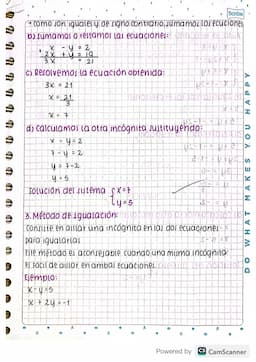 Scribe
* como son iguales y de signo contrario, sumamos las ecuaciones
b) sumamos o restamos las ecuaciones:
x - y = 2
2x + y = 19
3x = 21
c) Resolvemos la ecuación obtenida:
3x = 21
x = 21/3
x = 7
d) calculamos la otra incógnita sustituyendo:
x - y = 2
7 - y = 2
y = 7-2
y = 5
Solución del sistema { x=7
y=5
3. Método de igualación:
Consiste en aislar una incógnita en las dos ecuaciones
para igualarlas
Este método es aconsejable cuando una misma incógnita
es fácil de aislar en ambas ecuaciones.
Ejemplo:
x - y = 5
x + 2y = -1
DO WHAT MAKES YOU HAPPY
Powered by CS CamScanner